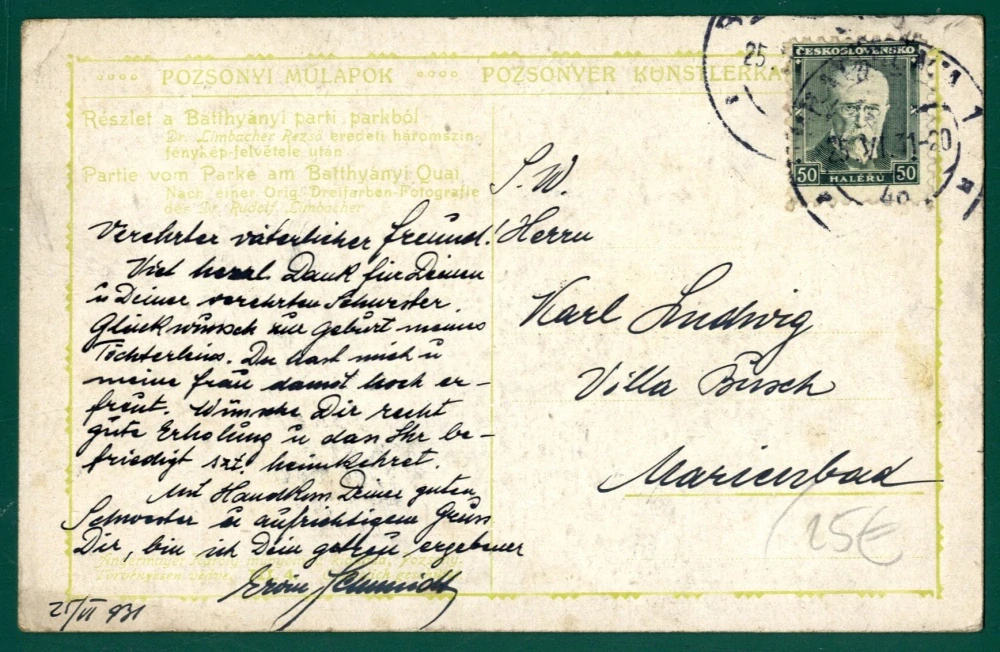 POZSONYI MÜLAPOK POZSONYER KÜNSTLERKA
Részlet a Batthyányi parti parkból
Dr. Limbacher Rezső eredeti háromszin-
fénykép-felvétele után
Partie vom Parke am Batthyányi Quai
Nach einer Orig. Dreifarben-Fotografie
des Dr. Rudolf Limbacher
ČESKOSLOVENSKO
50 HALÉŘŮ 50
25. VI. 31-20
S. W.
Herrn
Karl Ludwig
Villa Busch
Marienbad
Verehrter väterlicher Freund!
Viel herzl Dank für Deinen
u Deiner verehrten Schwester
Glückwunsch zur Geburt meines
Töchterleins. Du hast mich u
meine Frau damit hoch er-
freut. Wünsche Dir recht
gute Erholung u dass Ihr be-
friedigt szt. heimkehret.
Mit Handkuss Deiner guten
Schwester u aufrichtigem Gruss
Dir, bin ich Dein getreu ergebener
Erwin Schmidt
25/VI 931
25€